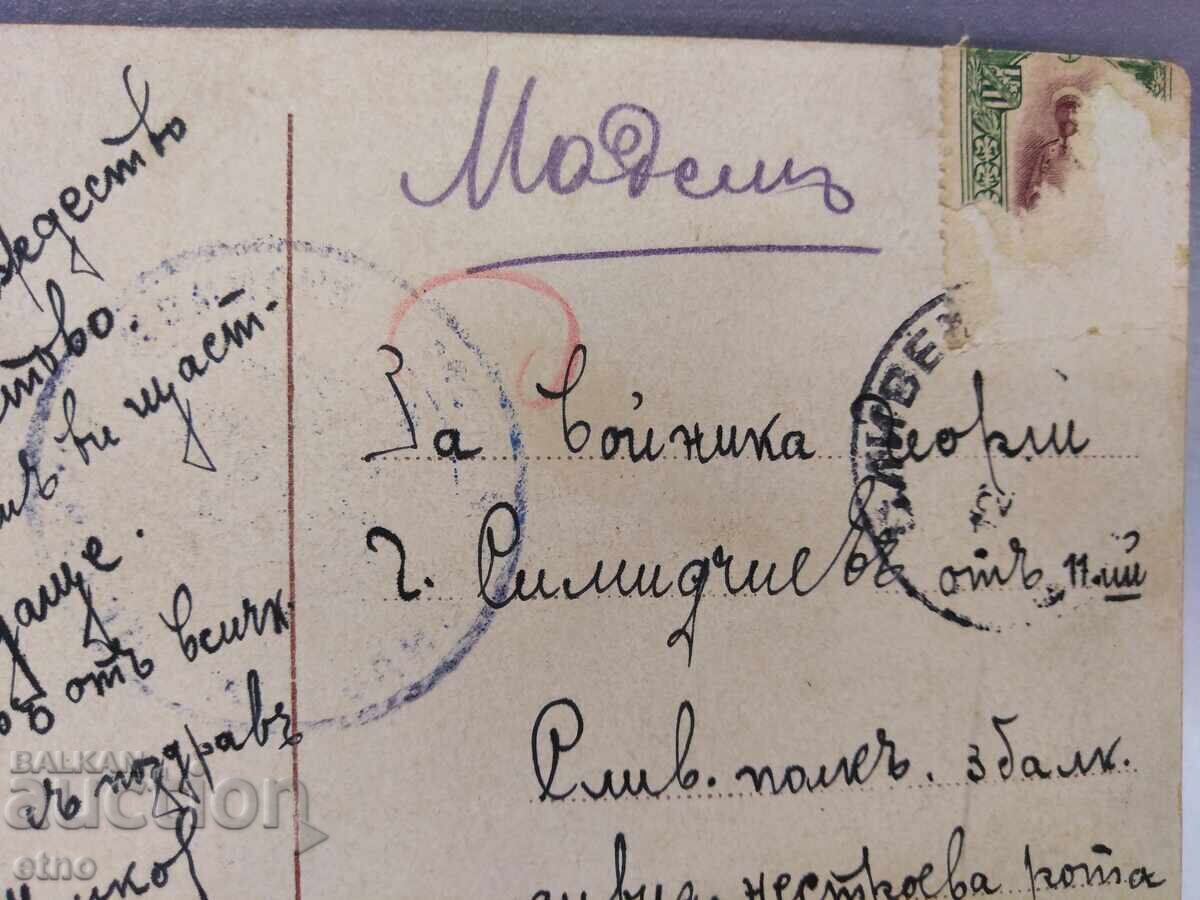 Младенъ
За Войника Георги
г. Симидчиевъ отъ 11-ий
Слив. полкъ. 3 балк.
дивиз. нестроева рота
ждество
ство.
ви щаст-
отъ всичк.
съ поздравъ
ЛИВЕН
BALKAN
auction
etno